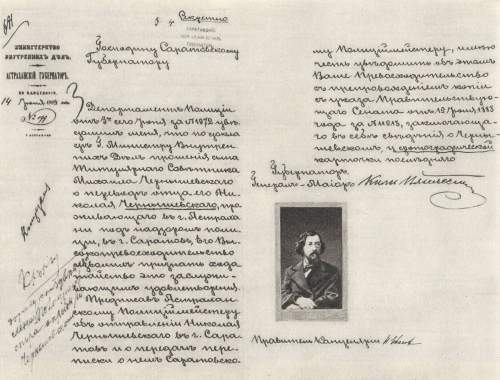 Секретно
Господину Саратовскому
Губернатору
МИНИСТЕРСТВО
ВНУТРЕННИХ ДѢЛЪ.
АСТРАХАНСКІЙ ГУБЕРНАТОРЪ.
ПО КАНЦЕЛЯРІИ.
14 Іюня 1889 года
№
Г. АСТРАХАНЬ
Департаментъ Полиціи
отъ 8го сего Іюня за № 1972 увѣ-
домилъ меня, что по докла-
ду Г. Министру Внутрен-
нихъ Дѣлъ прошенія сына
Титулярнаго Совѣтника
Михаила Чернышевскаго
о переводѣ отца его Ни-
колая Чернышевскаго, про-
живающаго въ г. Астраха-
ни подъ надзоромъ поли-
ціи, въ г. Саратовъ, Его Вы-
сокопревосходительство
изволилъ признать хода-
тайство это заслужи-
вающимъ удовлетворенія.
Предписавъ Астрахан-
скому Полиціймейстеру
объ отправленіи Николая
Чернышевскаго въ г. Сара-
товъ и о передачѣ пере-
писки о немъ Саратовско-
му Полиціймейстеру, имѣю
честь увѣдомить объ этомъ
Ваше Превосходительство
съ препровожденіемъ копіи
съ указа Правительствую-
щаго Сената отъ Іюня 1883
года за № заключающа-
го въ себѣ свѣдѣнія о Черны-
шевскомъ, и фотографической
карточки послѣдняго
Губернаторъ
Генералъ-Маіоръ
Правитель Канцеляріи